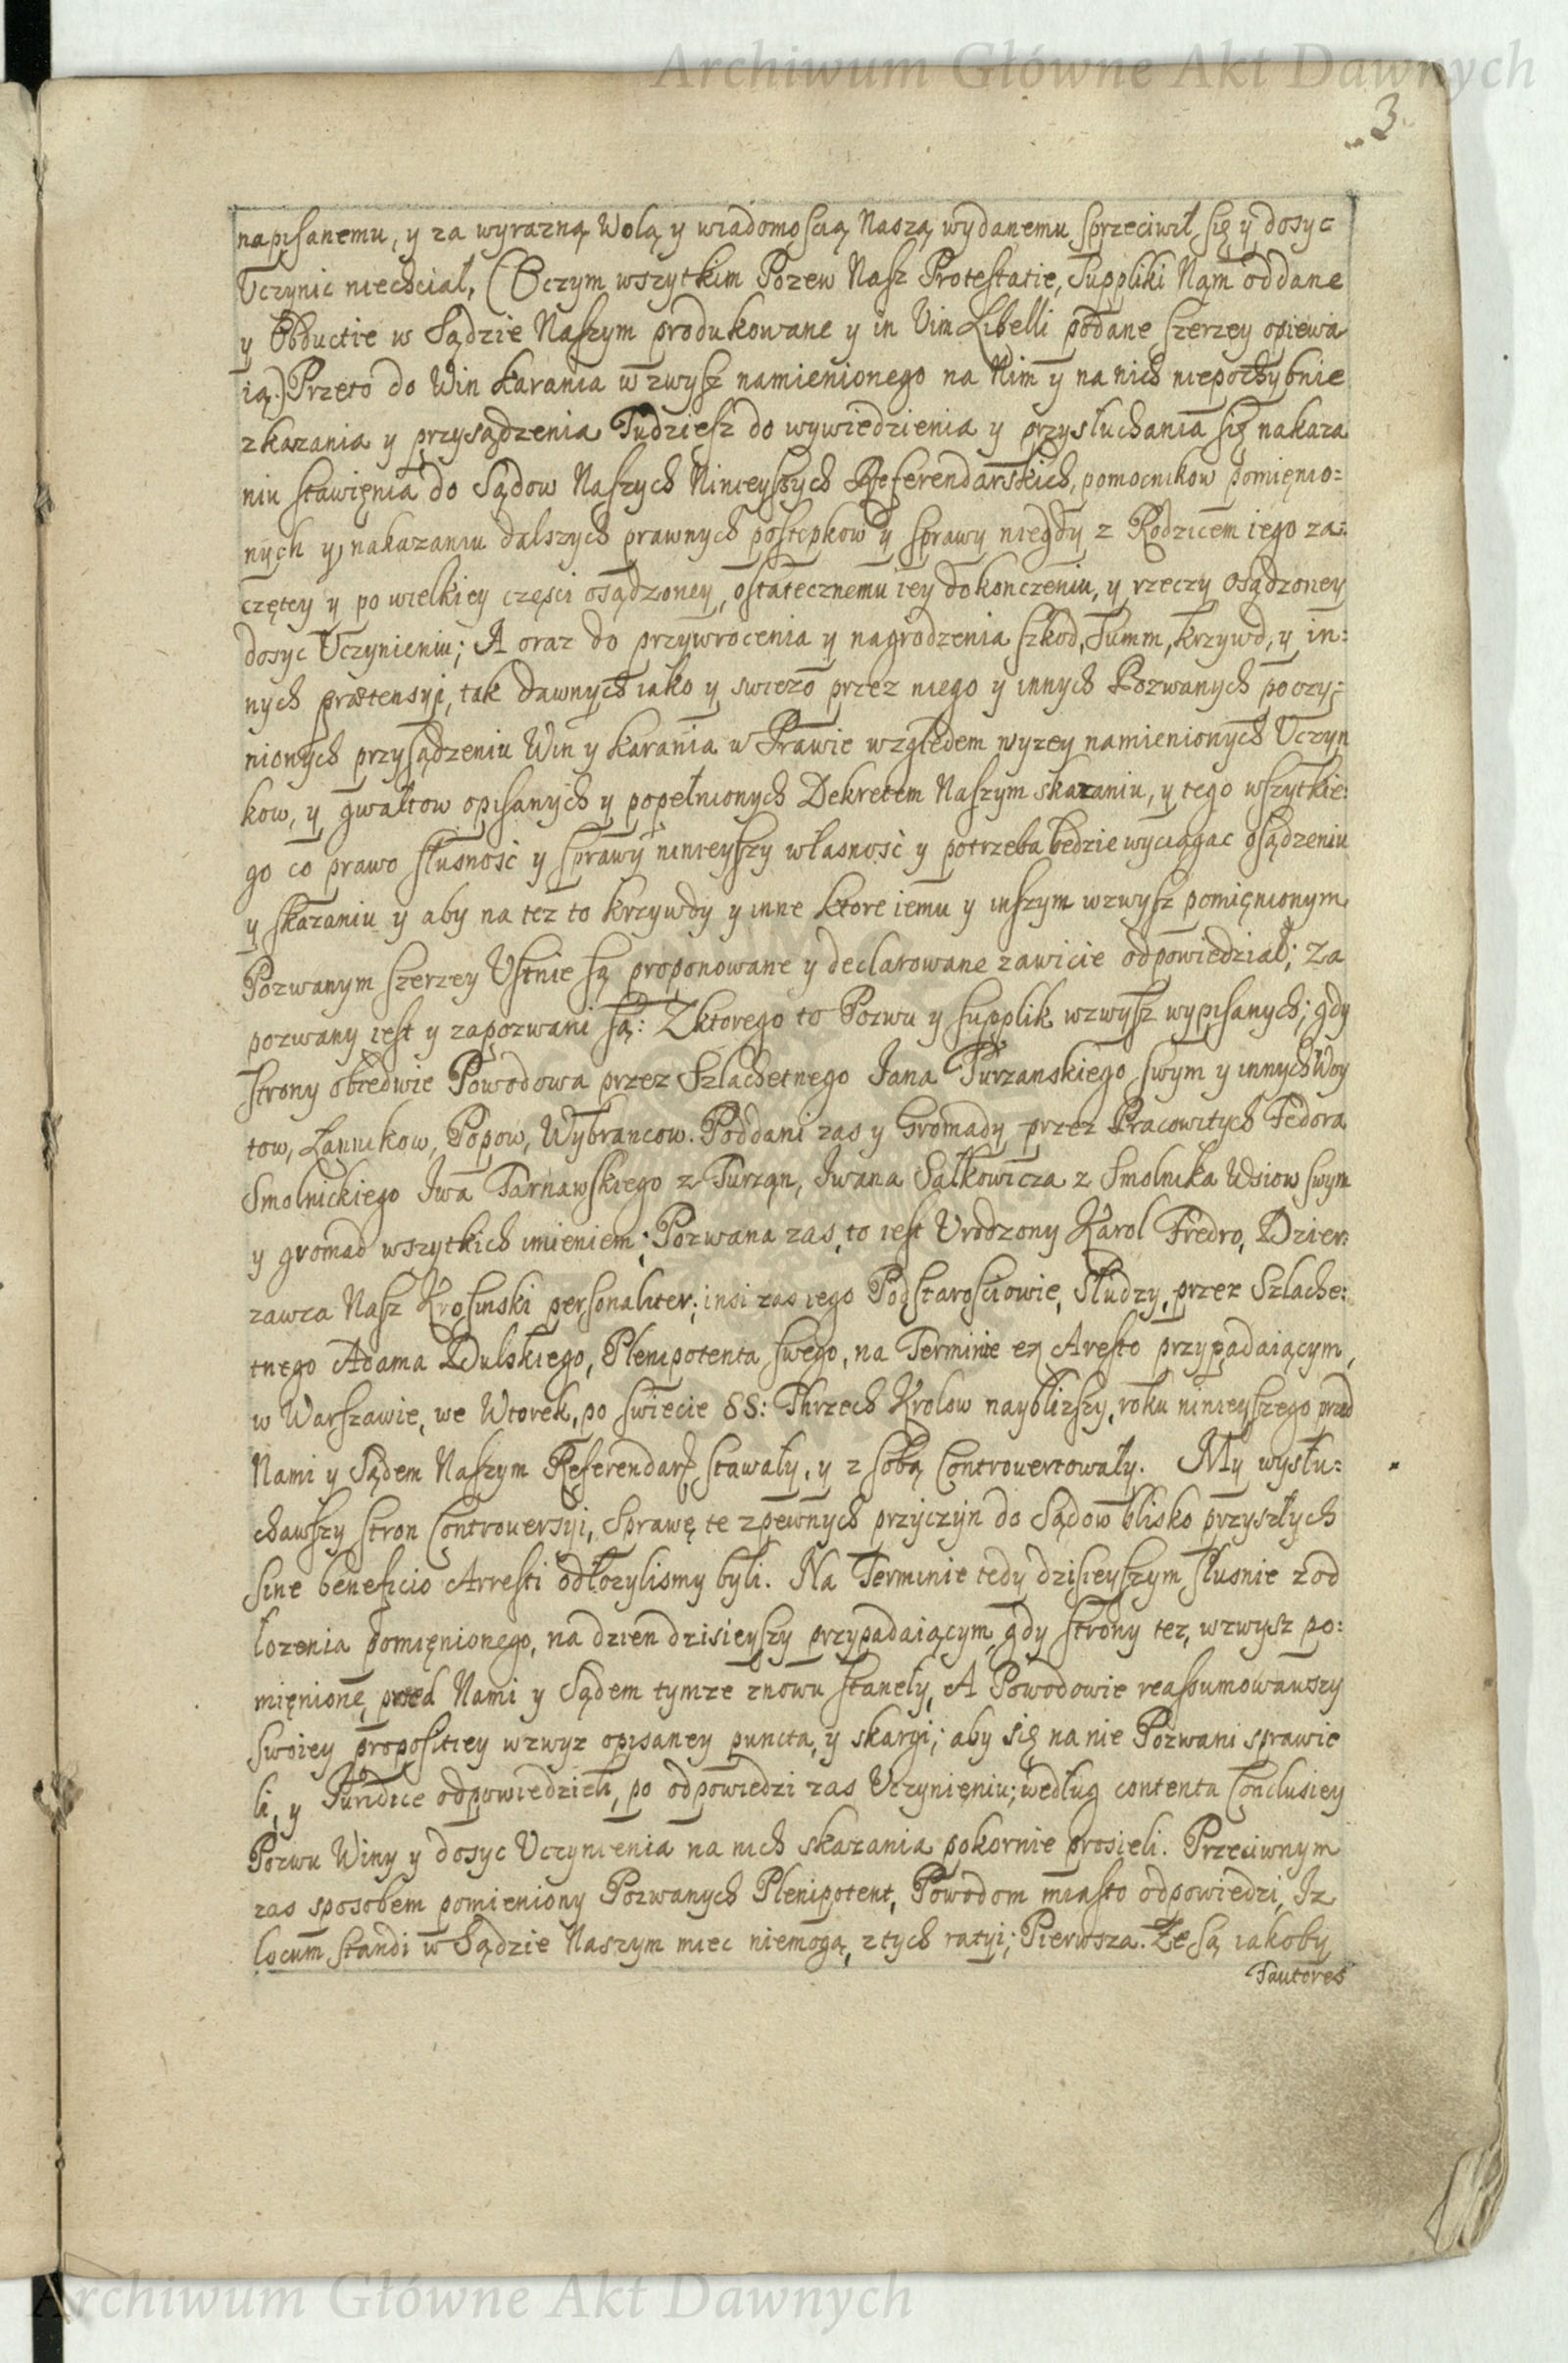 Archiwum Główne Akt Dawnych
3.
napisanemu, y za wyrazną Wolą y wiadomoscią Naszą wydanemu sprzeciwił się y dosyc
Uczynic niechciał, (Oczym wszytkim Pozew Nasz Protestatie, Suppliki Nąm oddane
y Obductie w Sądzie Naszym produkowane y in Vim Libelli podane szerzey opiewa
ią.) Przeto do Win karania wzwysz namienionego na Nim y na nich niepochybnie
zkazania y przysądzenia Tudziesz do wywiedzienia y przysłuchania się nakaza
niu stawięnia do Sądow Naszych Ninieyszych Referendarskich, pomocnikow pomięnio=
nych y nakazaniu dalszych prawnych postępkow y sprawy niegdy z Rodzicem iego za:
czętey y po wielkiey części osądzoney, ostatecznemu iey dokonczeniu, y rzeczy osądzoney
dosyc Uczynieniu; A oraz do przywrocenia y nagrodzenia szkod, Summ, krzywd, y in:
nych prætensyi, tak dawnych iako y swiezo przez niego y innych Pozwanych poczy=
nionych przysądzeniu Win y karania w Prawie względem wyzey namienionych Uczyn
kow, y gwałtow opisanych y popełnionych Dekretem Naszym skazaniu, y tego wszytkie:
go co prawo słusność y sprawy ninieyszy własność y potrzeba będzie wyciągac osądzeniu
y skazaniu y aby na tez to krzywdy y inne ktore iemu y inszym wzwysz pomięnionym
Pozwanym szerzey Ustnie są proponowane y declarowane zawicie odpowiedział; Za
pozwany iest y zapozwani są: Zktorego to Pozwu y supplik wzwysz wypisanych; gdy
strony obiedwie Powodowa przez Szlachetnego Jana Turzanskiego swym y innych Woy
tow, Łannikow, Popow, Wybrancow. Poddani zas y Gromady przez Pracowitych Fedora
Smolnickiego Iwa Tarnawskiego z Turząn, Iwana Sałkowicza z Smolnika Wsiow swym
y gromad wszytkich imieniem; Pozwana zas, to iest Urodzony Karol Fredro, Dzier:
zawca Nasz Krosinski personaliter; insi zas iego Podstarosciowie, Słudzy, przez Szlache:
tnego Adama Dulskiego, Plenipotenta swego, na Terminie ex Aresto przypadaiącym,
w Warszawie, we Wtorek, po swiecie SS: Thrzech Krolow naybliszy, roku ninieyszego przed
Nami y Sądem Naszym Referendars. stawały, y z sobą Controvertowały. My wysłu:
chawszy stron Controversyi, Sprawę te z pewnych przyczyn do Sądow blisko przyszłych
sine beneficio Arresti odłozylismy byli. Na Terminie tedy dzisieyszym słusnie z od
łozenia pomięnionego, na dzien dzisieyszy przypadaiącym, gdy strony tez, wzwysz po:
mięnione, przed Nami y Sądem tymze znowu stanely, A Powodowie reassumowawszy
swoiey propositiey wzwyz opisaney puncta, y skargi; aby się na nie Pozwani sprawie
li, y Juridice odpowiedzieli, po odpowiedzi zas Uczynięniu; według contenta Conclusiey
Pozwu Winy y dosyc Uczynienia na nich skazania pokornie prosieli. Przeciwnym
zas sposobem pomieniony Pozwanych Plenipotent, Powodom miasto odpowiedzi, Iz
locum standi w Sądzie Naszym miec niemogą, z tych ratyi; Pierwsza. Ze są iakoby
Fautores
Archiwum Główne Akt Dawnych